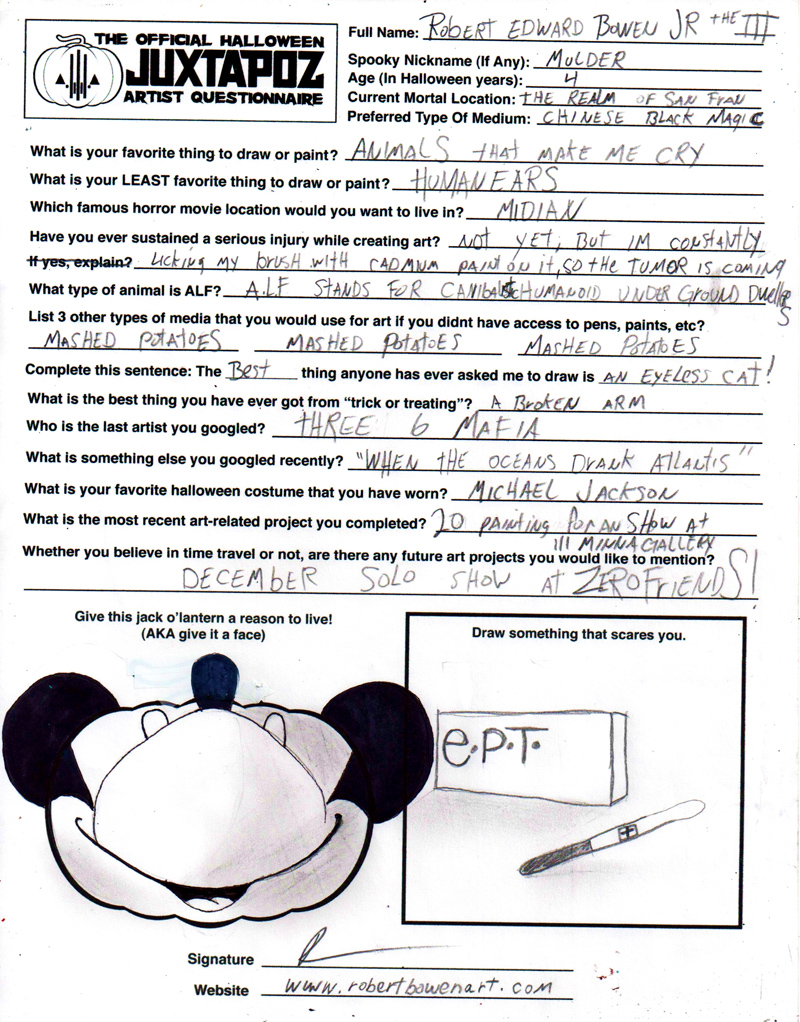 THE OFFICIAL HALLOWEEN
JUXTAPOZ
ARTIST QUESTIONNAIRE
Full Name: ROBERT EDWARD BOWEN JR THE III
Spooky Nickname (If Any): MULDER
Age (In Halloween years): 4
Current Mortal Location: THE REALM OF SAN FRAN
Preferred Type Of Medium: CHINESE BLACK MAGIC
What is your favorite thing to draw or paint? ANIMALS THAT MAKE ME CRY
What is your LEAST favorite thing to draw or paint? HUMAN EARS
Which famous horror movie location would you want to live in? MIDIAN
Have you ever sustained a serious injury while creating art? NOT YET, BUT IM CONSTANTLY
If yes, explain? LICKING MY BRUSH WITH CADMIUM PAINT ON IT, SO THE TUMOR IS COMING
What type of animal is ALF? A.L.F STANDS FOR CANIBALISTIC HUMANOID UNDER GROUND DWELLERS
List 3 other types of media that you would use for art if you didnt have access to pens, paints, etc?
MASHED POTATOES MASHED POTATOES MASHED POTATOES
Complete this sentence: The BEST thing anyone has ever asked me to draw is AN EYELESS CAT!
What is the best thing you have ever got from “trick or treating”? A BROKEN ARM
Who is the last artist you googled? THREE 6 MAFIA
What is something else you googled recently? "WHEN THE OCEANS DRANK ATLANTIS"
What is your favorite halloween costume that you have worn? MICHAEL JACKSON
What is the most recent art-related project you completed? 20 PAINTING FOR AN SHOW AT
111 MINNA GALLERY
Whether you believe in time travel or not, are there any future art projects you would like to mention?
DECEMBER SOLO SHOW AT ZEROFRIENDS!
Give this jack o’lantern a reason to live!
(AKA give it a face)
Draw something that scares you.
e.P.T.
Signature
Website www.robertbowenart.com